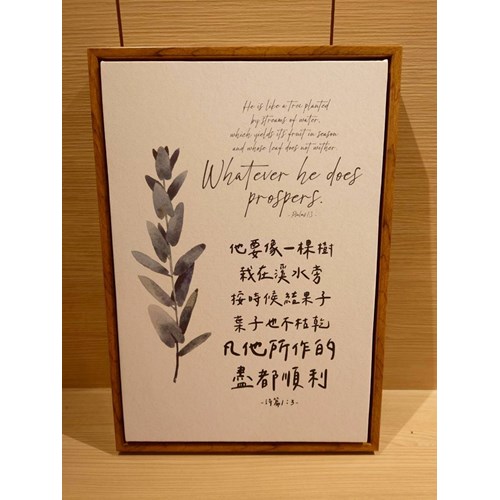 He is like a tree planted
by streams of water,
which yields its fruit in season
and whose leaf does not wither.
Whatever he does
prospers.
-Psalms 1:3-
他要像一棵樹
栽在溪水旁
按時候結果子
葉子也不枯乾
凡他所作的
盡都順利
-詩篇1:3-